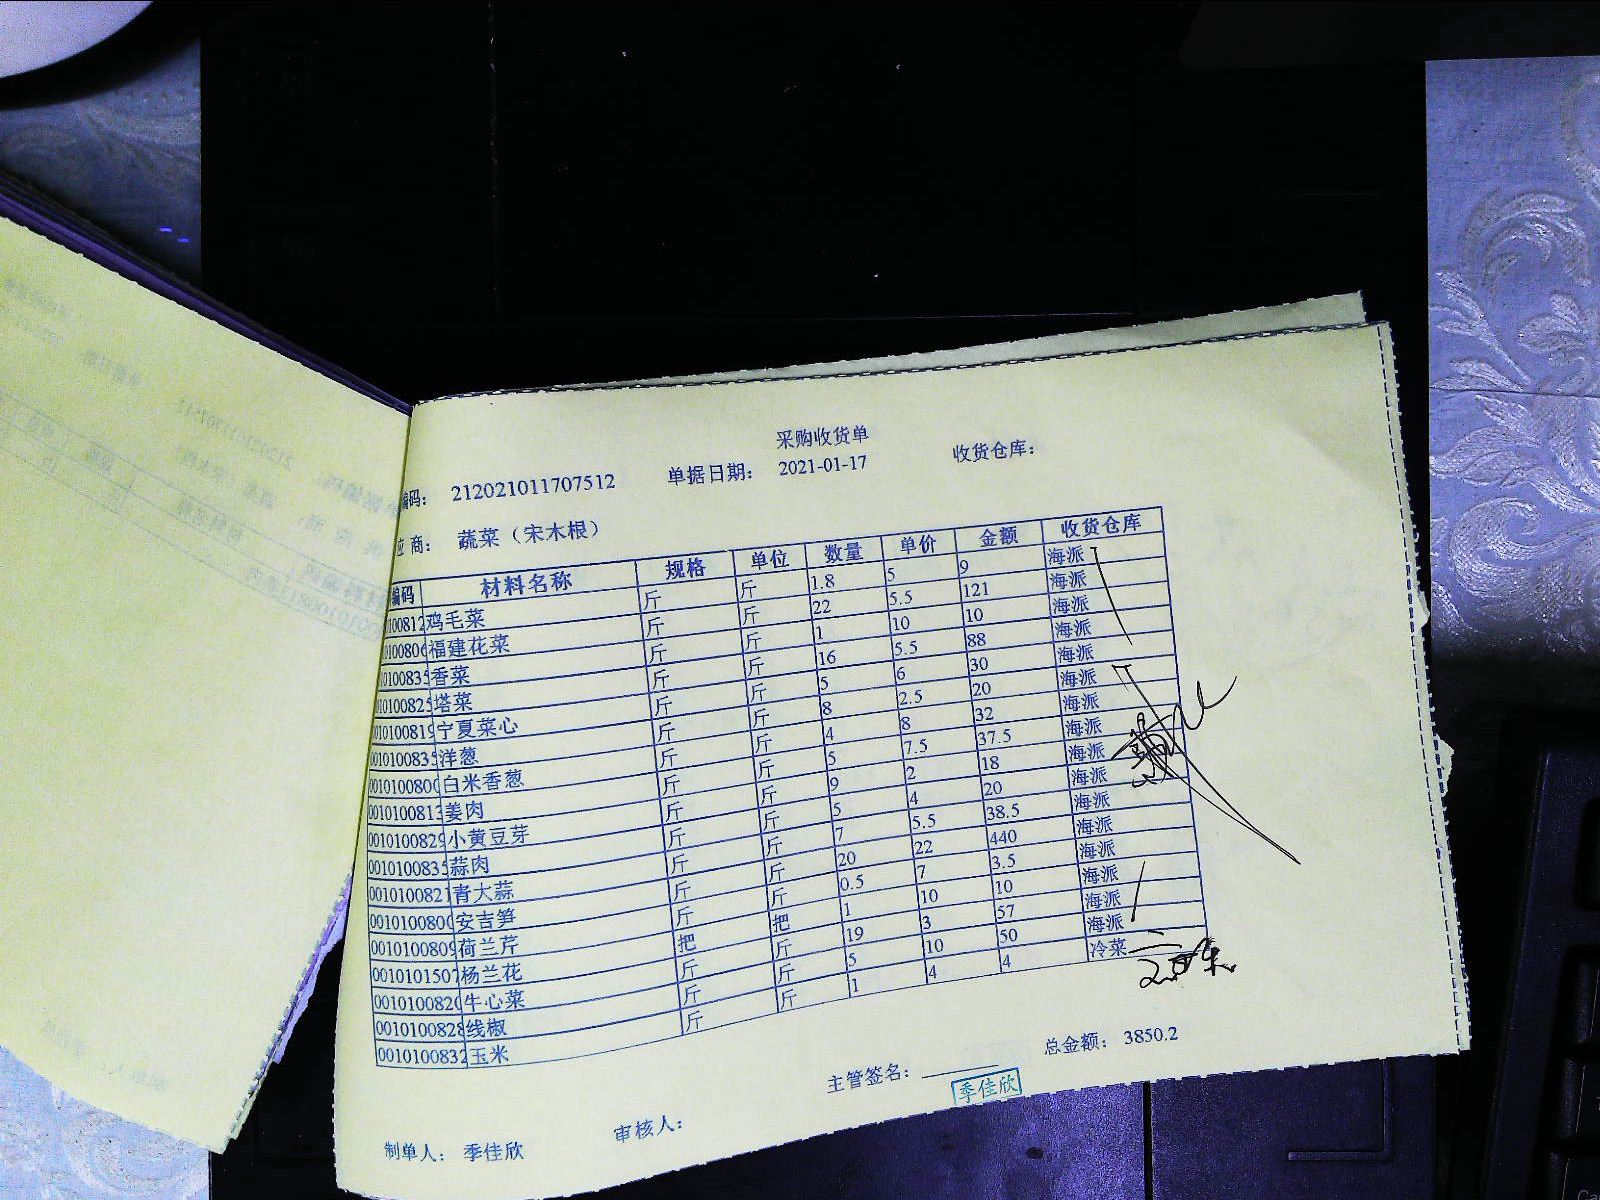 采购收货单
编码： 212021011707512 单据日期： 2021-01-17 收货仓库：
应商： 蔬菜（宋木根）
编码 材料名称 规格 单位 数量 单价 金额 收货仓库
100812 鸡毛菜 斤 斤 1.8 5 9 海派
100806 福建花菜 斤 斤 22 5.5 121 海派
0100835 香菜 斤 斤 1 10 10 海派
0100825 塔菜 斤 斤 16 5.5 88 海派
010100819 宁夏菜心 斤 斤 5 6 30 海派
010100835 洋葱 斤 斤 8 2.5 20 海派
0010100800 白米香葱 斤 斤 4 8 32 海派
0010100813 姜肉 斤 斤 5 7.5 37.5 海派
0010100829 小黄豆芽 斤 斤 9 2 18 海派
0010100835 蒜肉 斤 斤 5 4 20 海派
0010100821 青大蒜 斤 斤 7 5.5 38.5 海派
0010100800 安吉笋 斤 斤 20 22 440 海派
0010100809 荷兰芹 斤 斤 0.5 7 3.5 海派
0010101507 杨兰花 把 把 1 10 10 海派
0010100820 牛心菜 斤 斤 19 3 57 海派
0010100828 线椒 斤 斤 5 10 50 海派
0010100832 玉米 斤 斤 1 4 4 冷菜
总金额： 3850.2
主管签名：
季佳欣
制单人： 季佳欣 审核人：